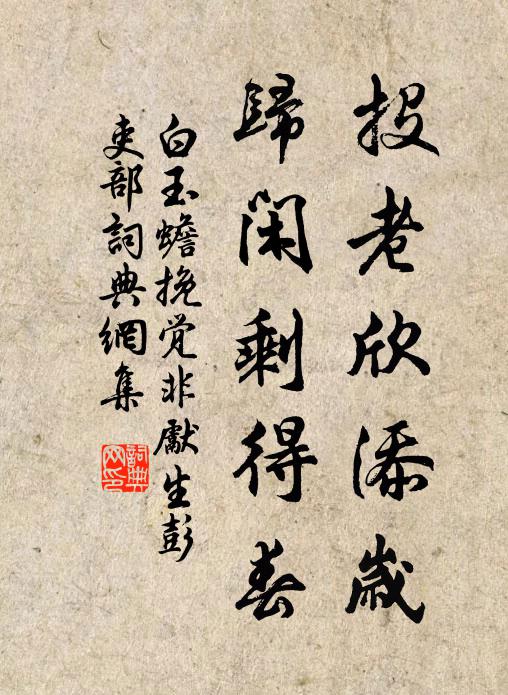 投老欣添歲
歸閑剩得春
白玉蟾挽觉非獻生彭
吏部詞典網集
詞典网印